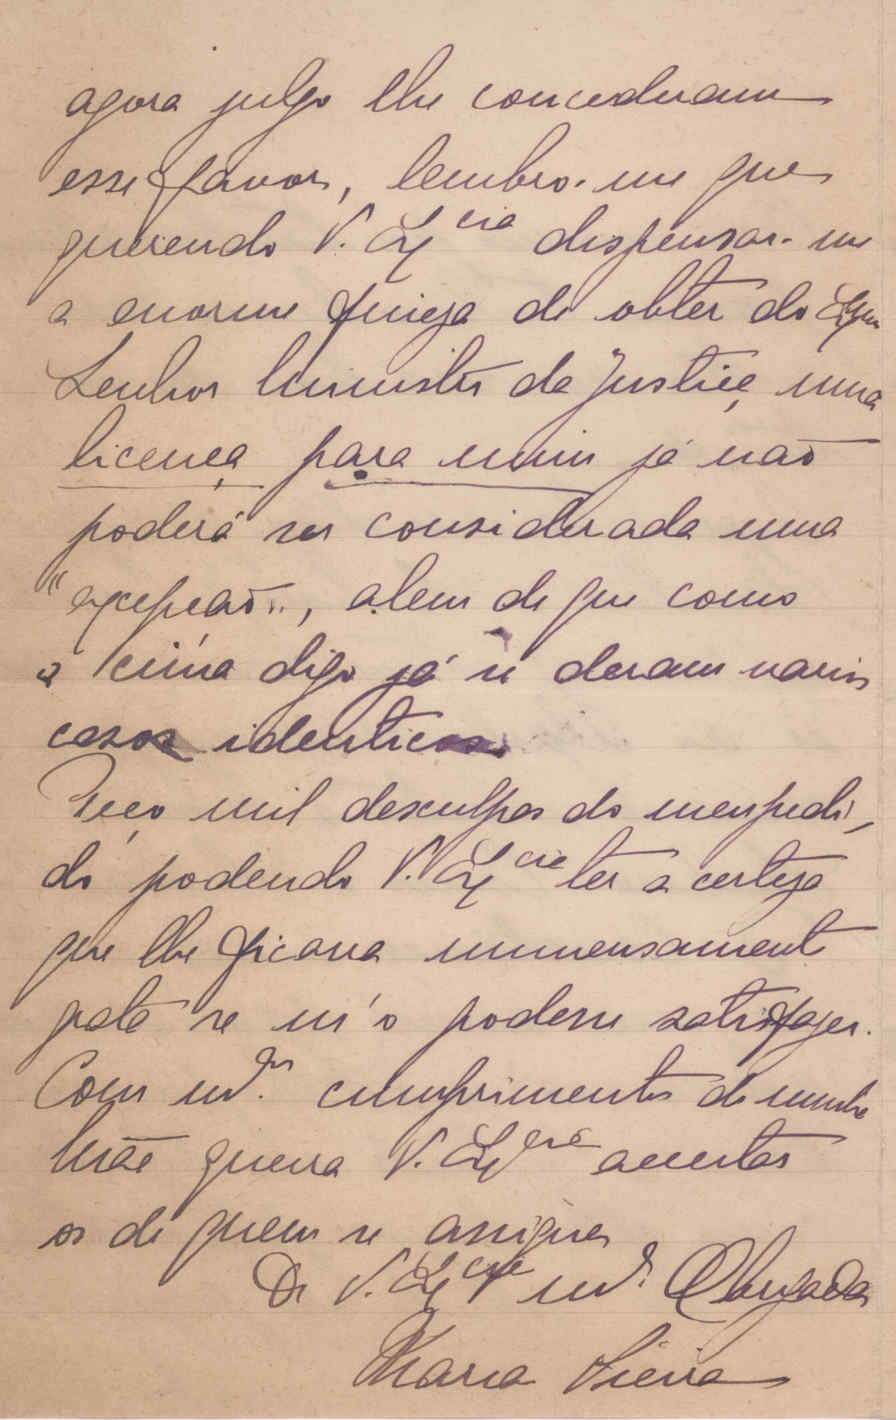 agora julgo lhe concederam
esse favor, lembro-me que
querendo V. Ex.cia dispensar-me
a enorme fineza de obter do Exm.
Senhor Ministro da Justiça, uma
licença para mim já não
poderá ser considerada uma
"excepção", alem de que como
a cima digo já se deram varios
casos identicos.
Peço mil desculpas do meu pedi-
do podendo V. Ex.cia ter a certeza
que lhe ficaria immensamente
grata se m'o podesse satisfazer.
Com md.os cumprimentos de minha
Mãe queira V. Ex.cia acceitar
os de quem se assigna
De V. Ex.cia md. Obrigada
Maria Vieira